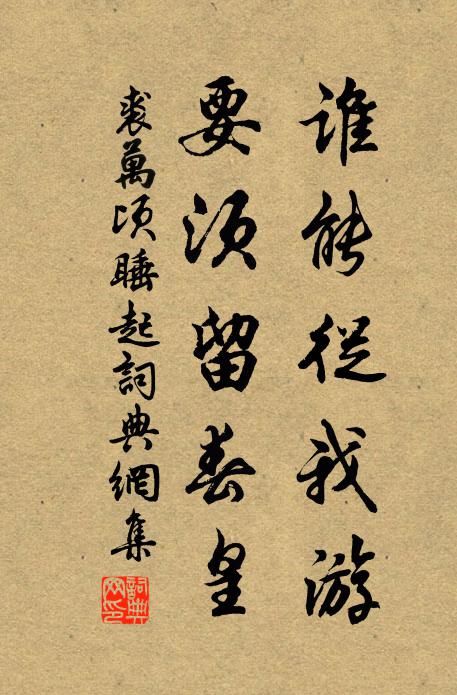 誰能從我游
要須留春皇
裘萬頃睡起詞典網集
詞典網印